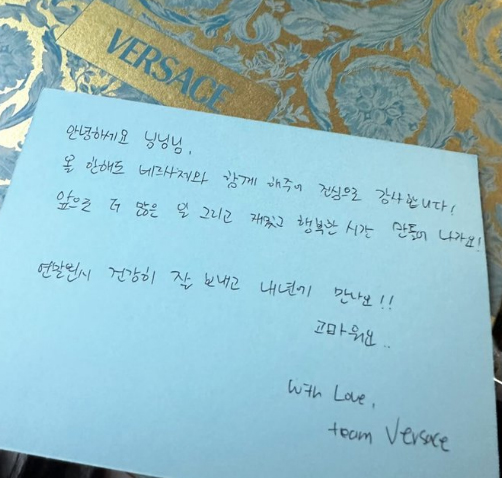 VERSACE
안녕하세요 닝닝님,
올 한해도 베르사체와 함께 해주어 진심으로 감사합니다!
앞으로 더 많은 일 그리고 재밌고 행복한 시간 만들어 나가요!
연말연시 건강히 잘 보내고 내년에 만나요!!
고마워요..
With Love,
team Versace